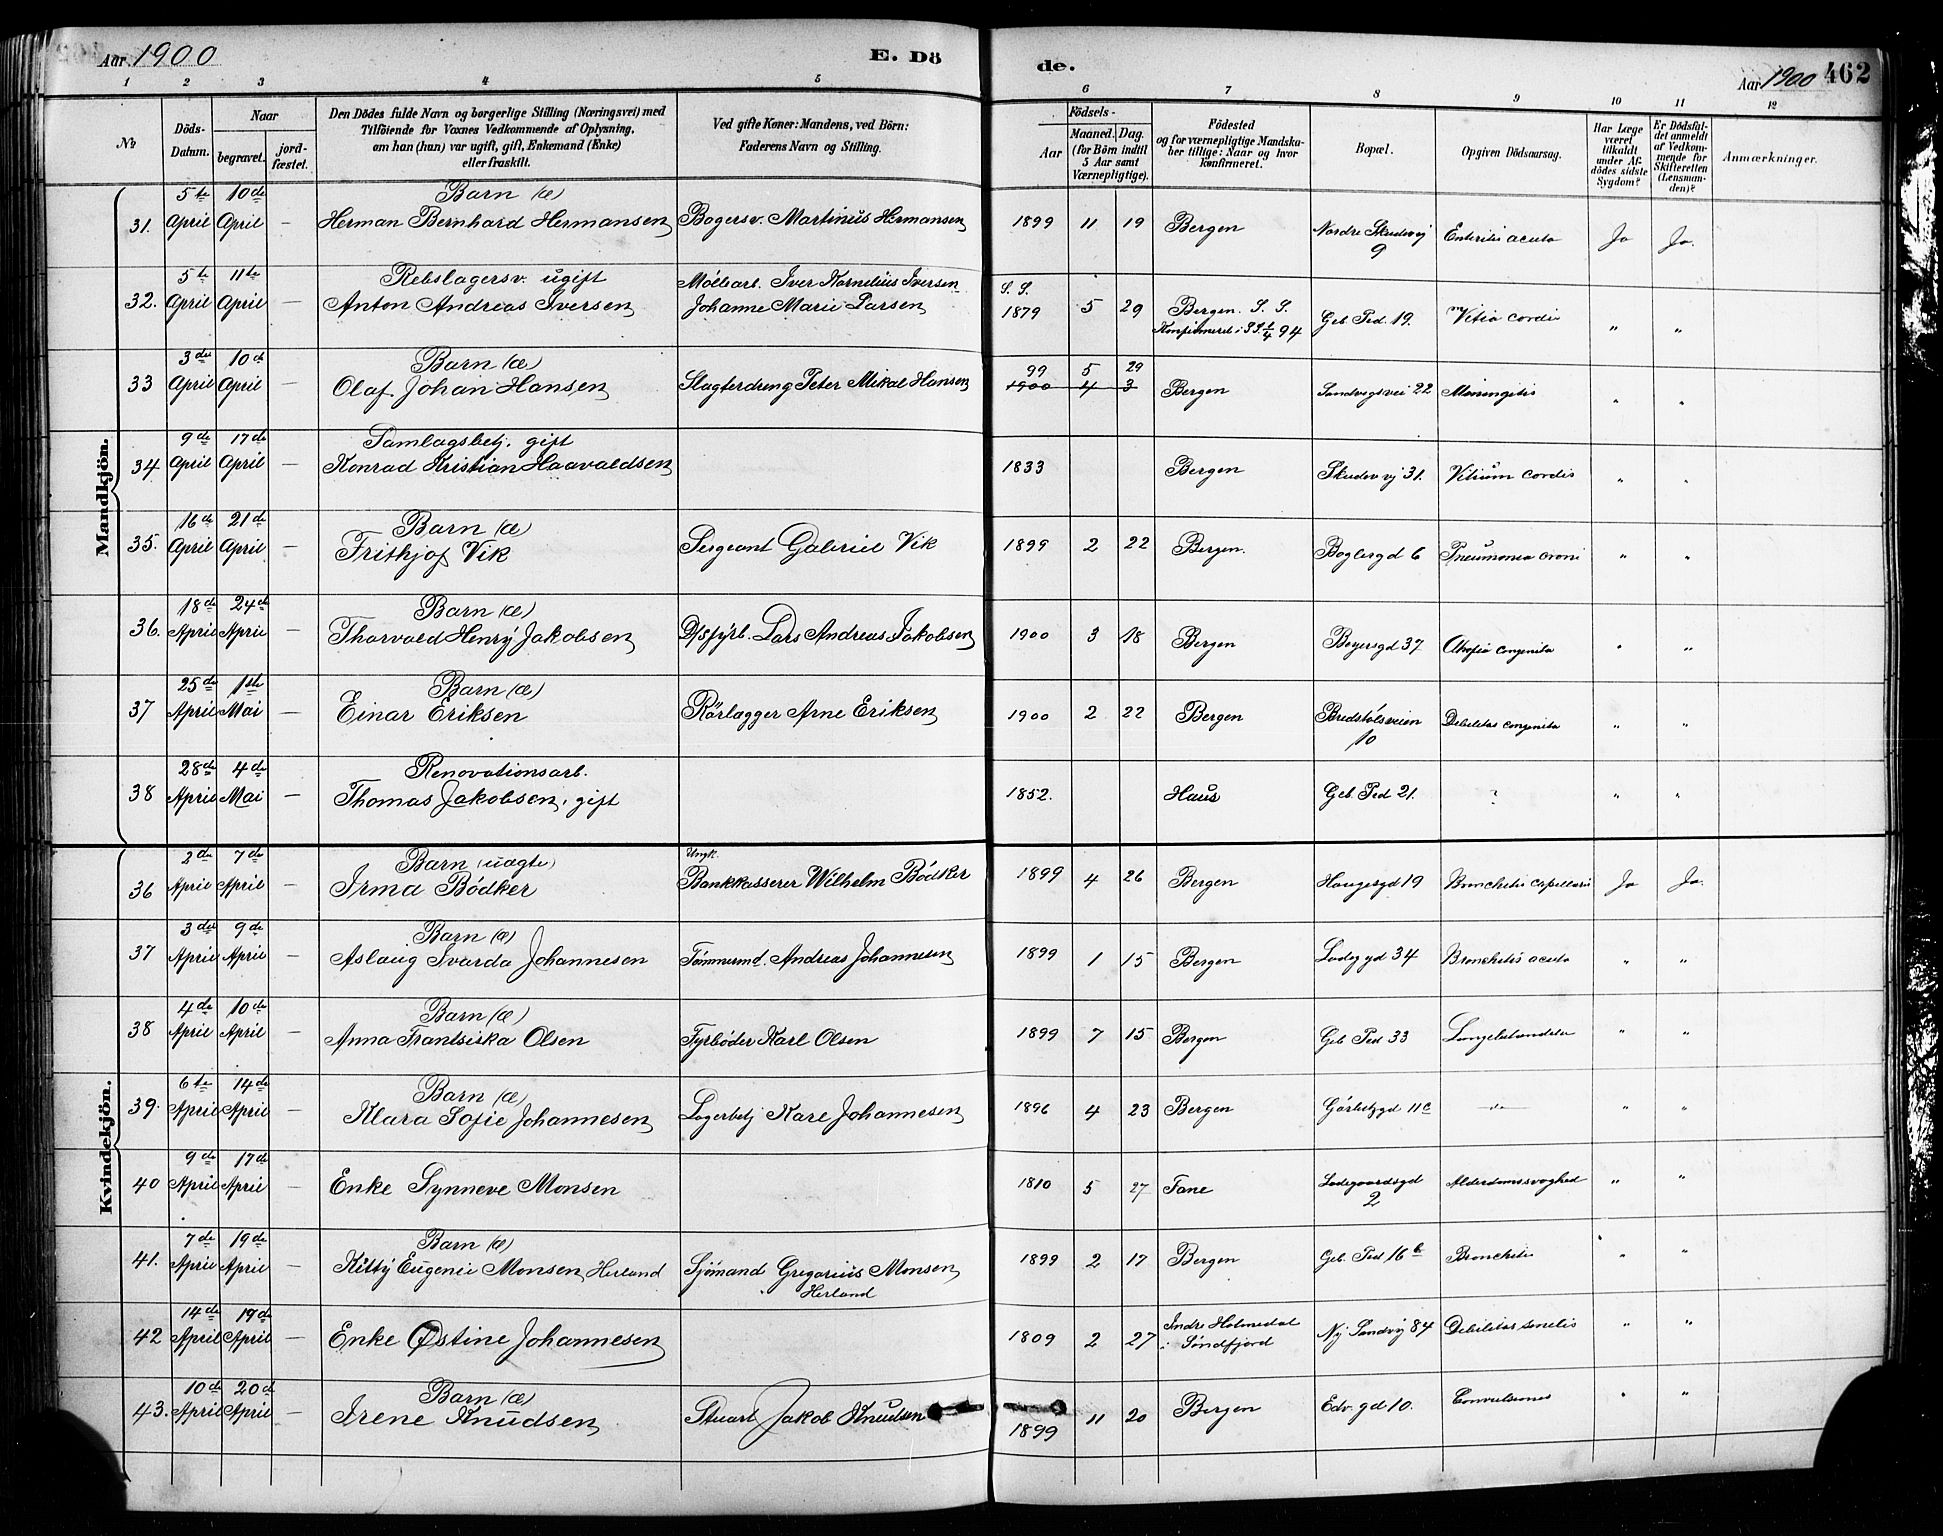 Aar 1900 E. Dö
de. Aar 1900 462
1 2 3 4 5 6 7 8 9 10 11 12
No
Döds-Datum.
Naar
begravet.
jord-fæstet.
Den Dödes fulde Navn og borgerlige Stilling (Næringsvei) med
Tilföiende for Voxnes Vedkommende af Oplysning,
om han (hun) var ugift, gift, Enkemand (Enke)
eller fraskilt.
Ved gifte Koner: Mandens, ved Börn:
Faderens Navn og Stilling.
Födsels-
Aar
Maaned. Dag.
(for Börn indtil
5 Aar samt
Værnepligtige).
Födested
og for værnepligtige Mandska-
ber tillige: Naar og hvor
konfirmeret.
Bopæl.
Opgiven Dödsaarsag.
Har Læge
været
tilkaldt
under Af-
dödes sidste
Sygdom?
Er Dödsfal-
det anmeldt
af Vedkom-
mende for
Skifteretten
(Lensman-
den)?
Anmærkninger.
Mandkjön.
5te 10de Barn (æ)
31. April April — Herman Bernhard Hermansen Bagersv. Martinus Hermansen 1899 11 19 Bergen Nordre Skudevij 9 Enteritis acuta Ja Ja.
5te 11te Rebslagersv. ugift Möllearb. Iver Kornelius Iversen S. S.
32. April April — Anton Andreas Iversen Johanne Marie Larsen 1879 5 29 Bergen. S. S. Geb. Ped. 19. Vitia cordis " "
Konfirmeret i SS 1/4 94
3die 10de Barn (æ) 99 5 29
33 April April — Olaf Johan Hansen Slagterdreng Peter Mikal Hansen 1900 4 3 Bergen Sandvigsvei 22 Meningitis " "
9de 17de Samlagsbetj. gift
34 April April — Konrad Kristian Haavaldsen 1833 Bergen Skudevvj 31. Vitium cordis " "
16de 21de Barn (æ)
35. April April — Frithjof Vik Sergeant Gabriel Vik 1899 2 22 Bergen. Boglergd 6 Pneumonia croni " "
18de 24de Barn (æ)
36. April April — Thorvald Henry Jakobsen D/s fyrb. Lars Andreas Jakobsen 1900 3 18 Bergen Beyersgd 37 Atrofia congenita " "
25de 1ste Barn (æ)
37 April Mai — Einar Eriksen Rörlægger Arne Eriksen 1900 2 22 Bergen Bredstölsveien 10 Debilitas congenita " "
28de 4de Renovationsarb.
38 April Mai — Thomas Jakobsen, gift 1852. Haus Geb. Ped 21. ? " "
Kvindekjön.
2de 7de Barn (uægte) Ungk.
36 April April — Irma Bödker Bankkasserer Wilhelm Bödker 1899 4 26 Bergen Haugesgd 19 Bronchitis capillaris Ja Ja.
3die 9de Barn (æ)
37 April April — Aslaug Svarda Johannesen Tömmermd. Andreas Johannesen 1899 1 15 Bergen Ladegd 34 Bronchitis acuta " "
4de 10de Barn (æ)
38 April April — Anna Frantsiska Olsen Fyrböder Karl Olsen 1899 7 15 Bergen Geb Ped 33 Lungebetændelse " "
6te 14de Barn (æ)
39. April April — Klara Sofie Johannesen Lagerbetj Karl Johannesen 1896 4 23 Bergen Görbitzgd 11c — do — " "
9de 17de
40 April April — Enke Synneve Monsen 1810 5 27 Fane Ladegaardsgd 2 Alderdomssvaghed " "
7de 19de Barn (æ)
41. April April — Kitty Eugenie Monsen Herland Sjömand Gregorius Monsen Herland 1899 2 17 Bergen Geb. Ped 16b Bronchitis " "
14de 19de
42 April April — Enke Østine Johannesen 1809 2 27 Indre Holmedal i Söndfjord Ny Sandvij 84 Debilitas senilis " "
10de 20de Barn (æ)
43. April April — Irene Knudsen Stuart Jakob Knudsen 1899 11 20 Bergen Edv. gd 10. Convulsiones " "